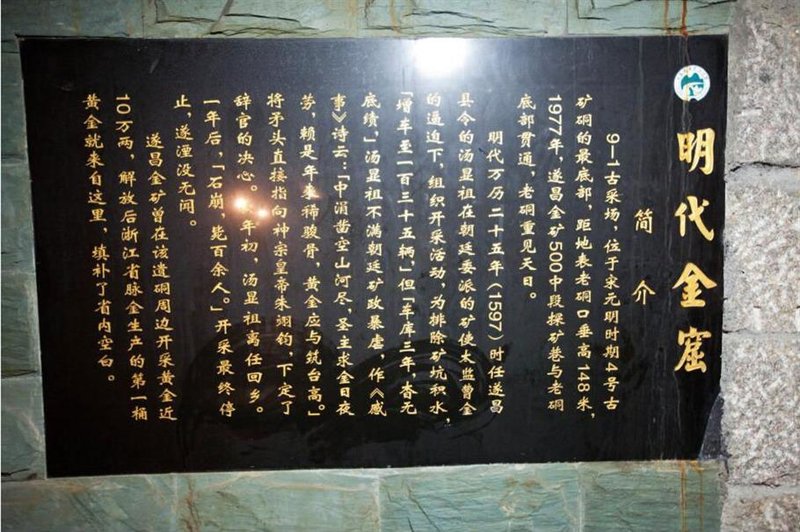 明代金窟
简介
9—1古采场，位于宋元明时期4号古
矿硐的最底部，距地表老硐口垂高148米，
1977年，遂昌金矿500中段探矿巷与老硐
底部贯通，老硐重见天日。
明代万历二十五年（1597）时任遂昌
县令的汤显祖在朝廷委派的矿使太监曹金
的逼迫下，组织开采活动，为排除矿坑积水，
“增车至一百三十五辆，”但“车库三年，杳无
底绩，”汤显祖不满朝廷矿政暴虐，作《感
事》诗云：“中涓凿空山河尽，圣主求金日夜
劳，赖是年来稀骏骨，黄金应与筑台高。”
将矛头直接指向神宗皇帝朱翊钧，下定了
辞官的决心。年初，汤显祖离任回乡。
一年后，“石崩，毙百余人。”开采最终停
止，遂湮没无闻。
遂昌金矿曾在该遗硐周边开采黄金近
10万两，解放后浙江省脉金生产的第一桶
黄金就来自这里，填补了省内空白。